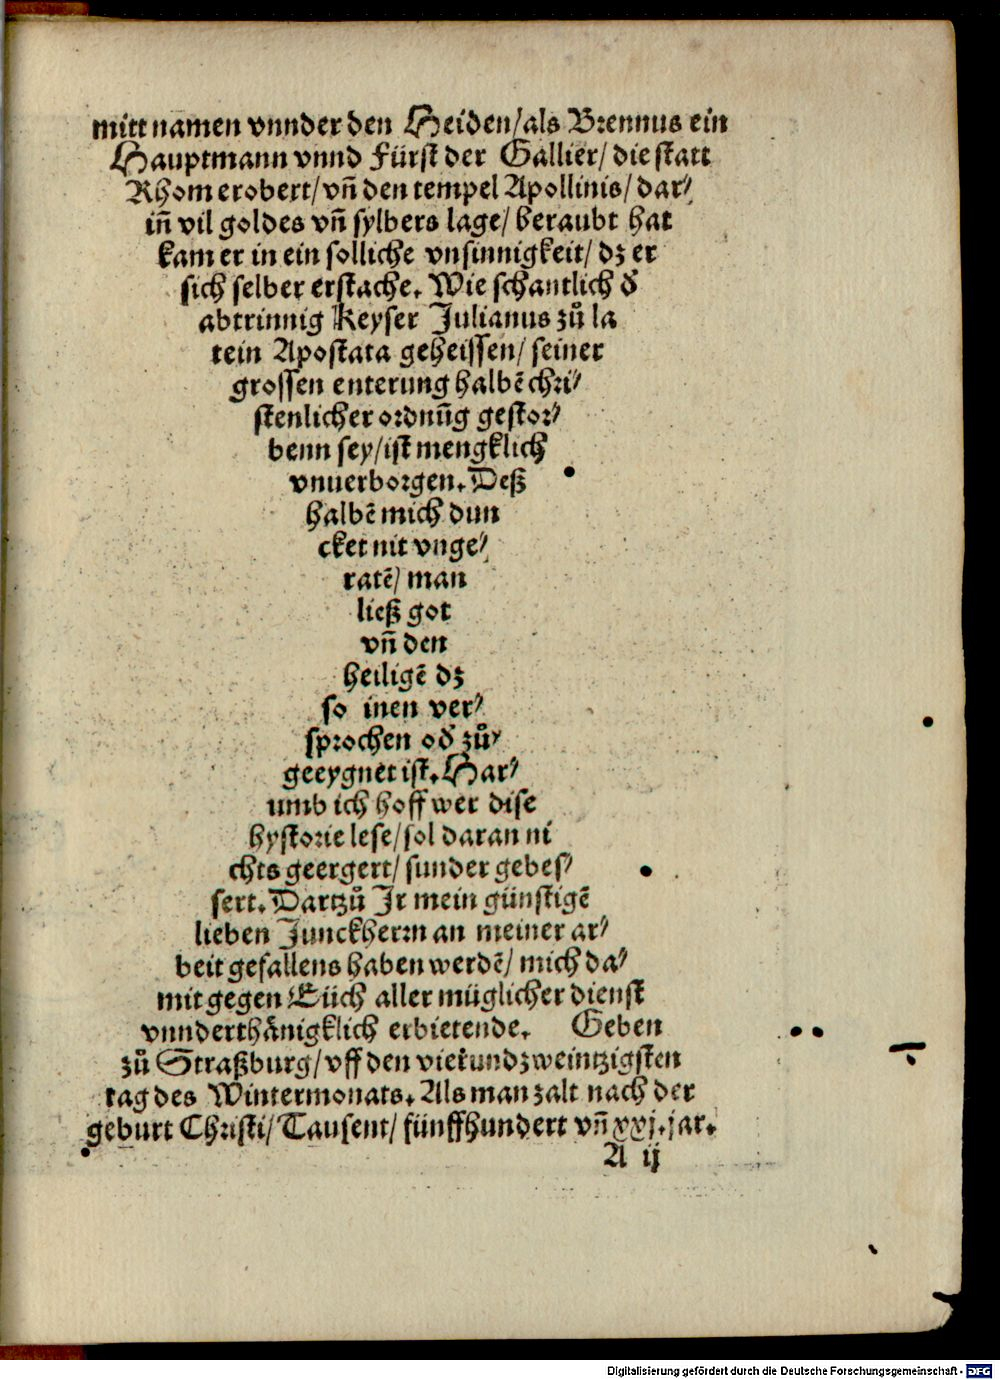 mitt namen vnnder den Heiden/als Brennus ein
Hauptmann vnnd Fürst der Gallier/ die statt
Rhom erobert/vñ den tempel Apollinis/ dar⸗
iñ vil goldes vñ sylbers lage/ beraubt hat
kam er in ein solliche vnsinnigkeit/ dz er
sich selber erstache. Wie schantlich d̕
abtrinnig Keyser Julianus zů la
tein Apostata geheissen/ seiner
grossen enterung halbẽ chri⸗
stenlicher ordnũg gestor⸗
benn sey/ist mengklich
vnuerborgen. Deß
halbẽ mich dun
cket nit vnge⸗
ratẽ/ man
ließ got
vñ den
heiligẽ dz
so inen ver⸗
sprochen od̕ zů⸗
geeygnet ist. Har⸗
umb ich hoff wer dise
hystorie lese/sol daran ni
chts geergert/ sunder gebes⸗
sert. Dartzů Jr mein günstigẽ
lieben Junckherrn an meiner ar⸗
beit gefallens haben werdẽ/ mich da⸗
mit gegen Eüch aller müglicher dienst
vnnderthånigklich erbietende. Geben
zů Straßburg/vff den vierundzweintzigsten
tag des Wintermonats. Als man zalt nach der
geburt Christi/ Tausent/ fünffhundert vñ xxj. jar.
A ij
Digitalisierung gefördert durch die Deutsche Forschungsgemeinschaft - DFG